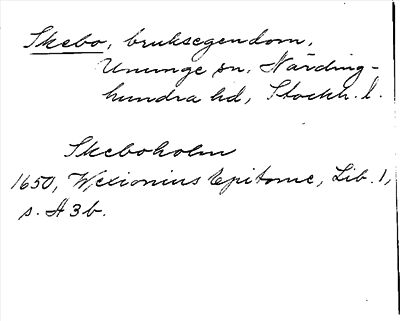 Skebo, bruksegendom,
Ununge sn, Närding-
hundra hd, Stockh. l.
Skeboholm
1650, Wexionius Epitome, Lib. 1,
s. A3b.